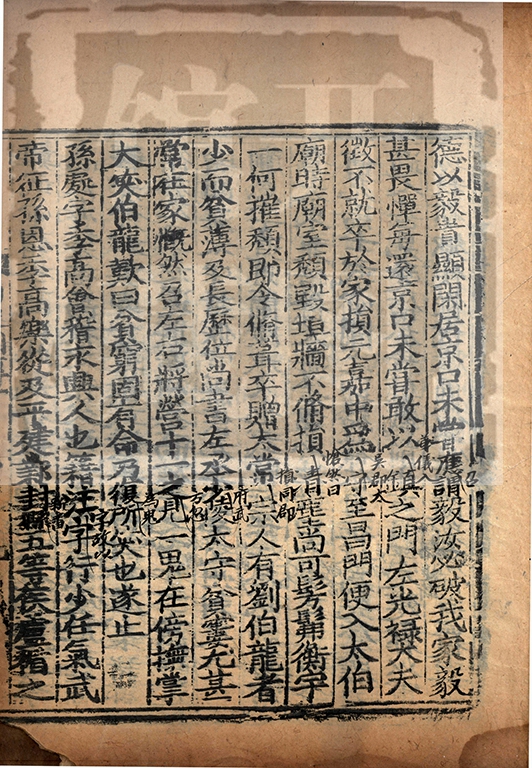 德以毅貴顯閑居京口未嘗應召謂毅汝必破我家毅
甚畏憚每還京口未嘗敢以羽儀入鎮之門左光祿大夫
徵不就卒於家損元嘉中爲吳郡太守至昌門便入太伯
廟時廟室頹毀垣牆不脩損愴然曰清塵尚可髣髴衡宇
一何摧頹即令脩葺卒贈太常損同郡宗人有劉伯龍者
少而貧薄及長歷位尚書左丞少府武陵太守貧窶尤甚
常在家慨然召左右將營十一之方忽見一鬼在傍撫掌
大笑伯龍歎曰貧窮固有命乃復爲鬼所笑也遂止
孫處字季高會稽永興人也籍注字故以字行少任氣武
帝征孫恩季高樂從及平建鄴封新番縣五等侯盧循之